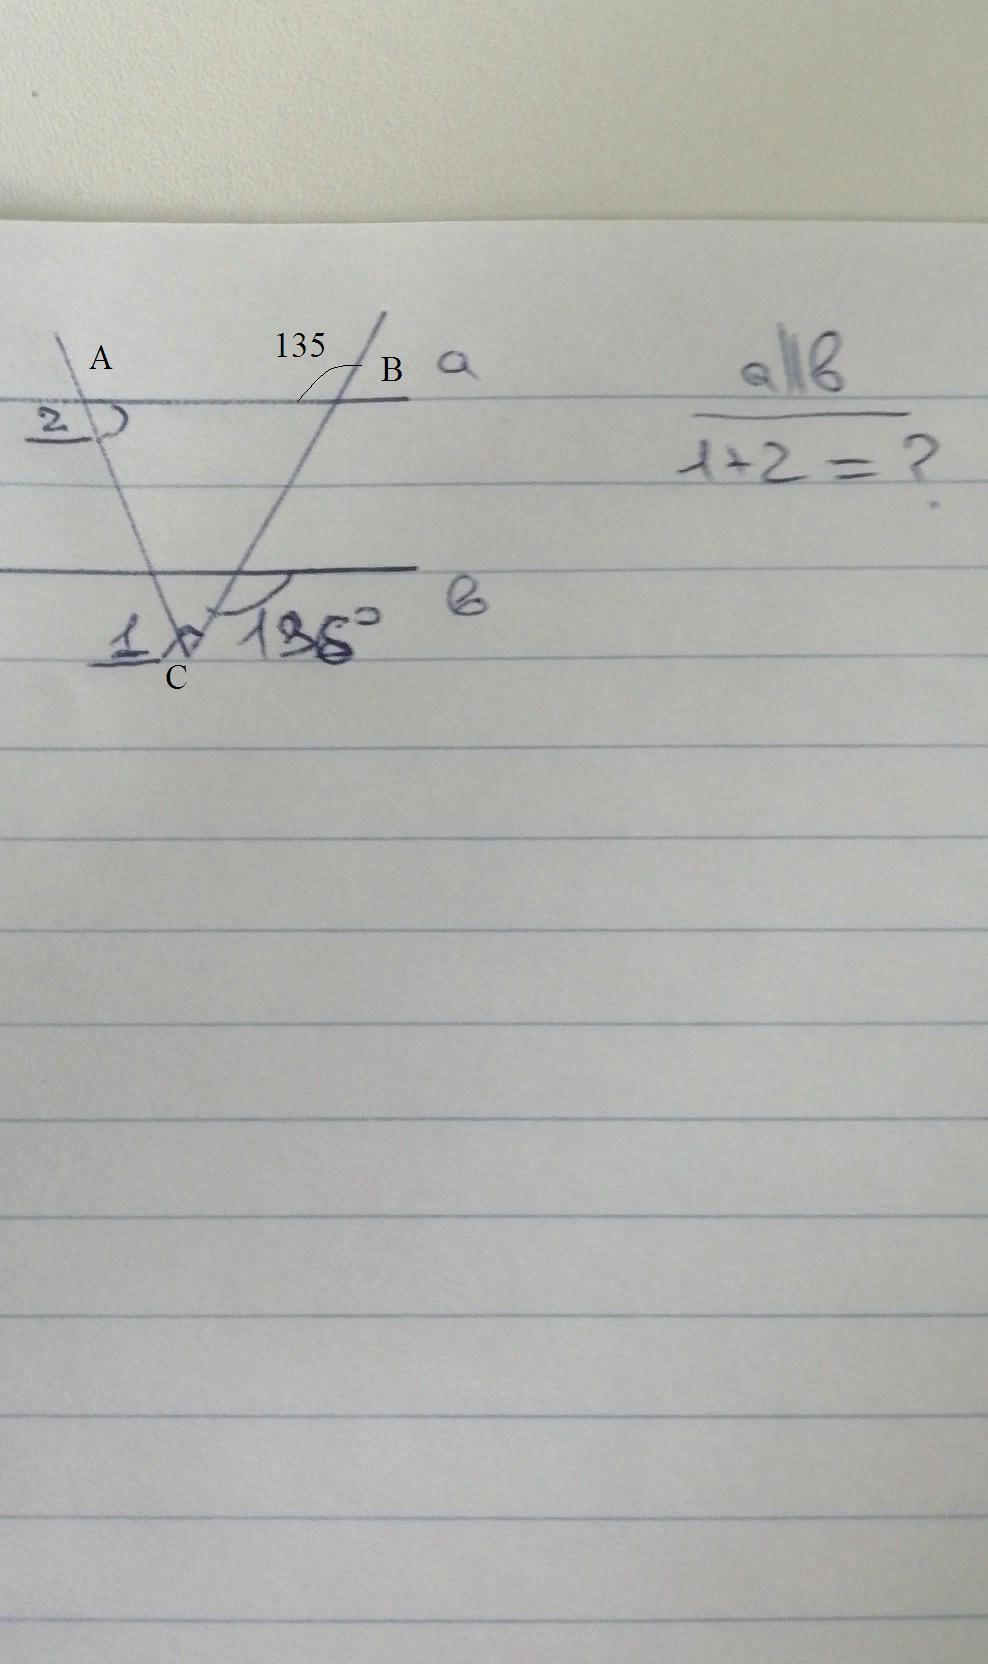 135
A
B
a
a||в
2
1+2 = ?
в
1
135°
C